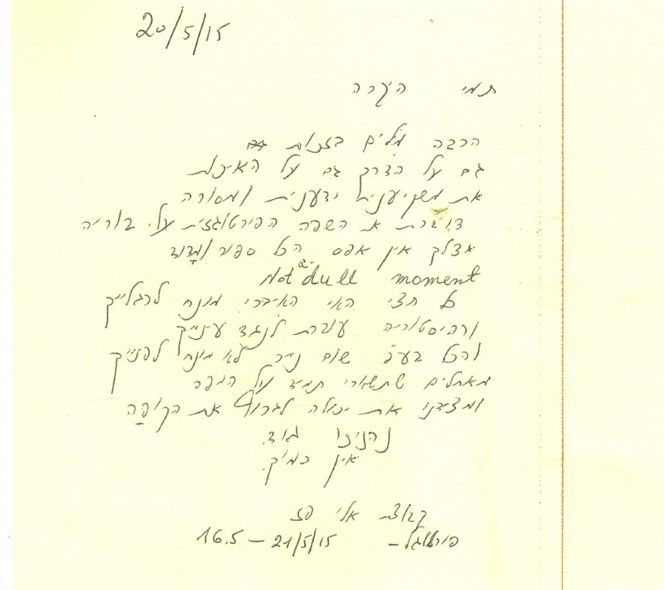 20/5/15
תמי היקרה
הרבה מילים בזכות
גם על הדרך גם על האיכות
את משקיענית ידענית ומסורה
דוברת א השפה הפורטוגזית על בוריה
אצלך אין אפס הכל ספור ומדוד
Not a dull moment
כל חצי האי האיברי מונח לרגלייך
וההיסטוריה עוברת לנגד עינייך
והכל בע"פ שום נייר לא מונח לפנייך
מאחלים שתשארי תמיד על המפה
ומצידנו את יכולה לגרוף את הקופָּה
נהנינו מאוד.
אין כמוך.
קבוצת אלי פז
פורטוגל - 16.5 – 21/5/15